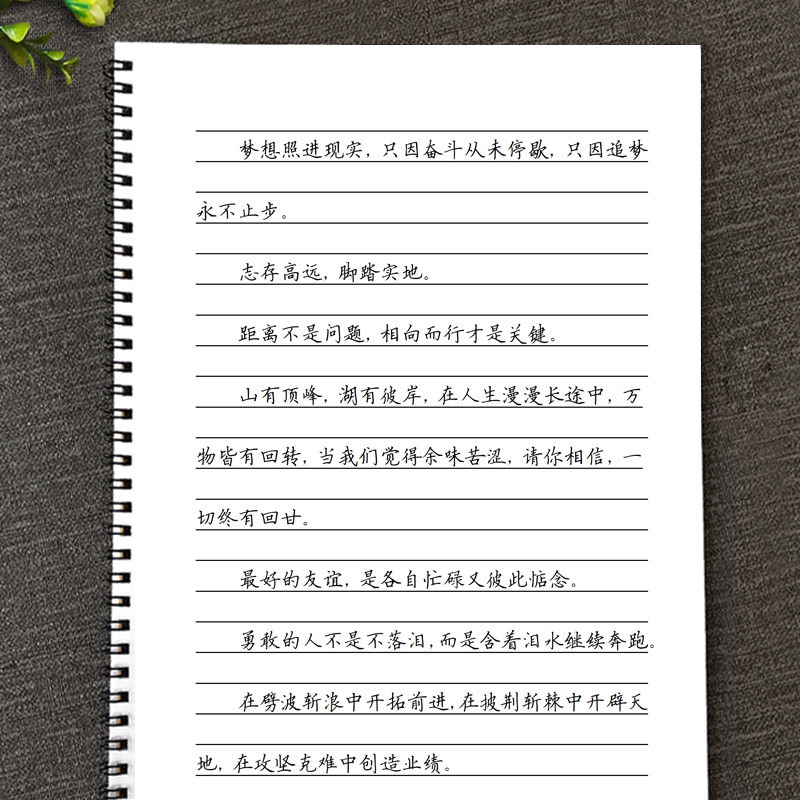 梦想照进现实，只因奋斗从未停歇，只因追梦
永不止步。
志存高远，脚踏实地。
距离不是问题，相向而行才是关键。
山有顶峰，湖有彼岸，在人生漫漫长途中，万
物皆有回转，当我们觉得余味苦涩，请你相信，一
切终有回甘。
最好的友谊，是各自忙碌又彼此惦念。
勇敢的人不是不落泪，而是含着泪水继续奔跑。
在劈波斩浪中开拓前进，在披荆斩棘中开辟天
地，在攻坚克难中创造业绩。